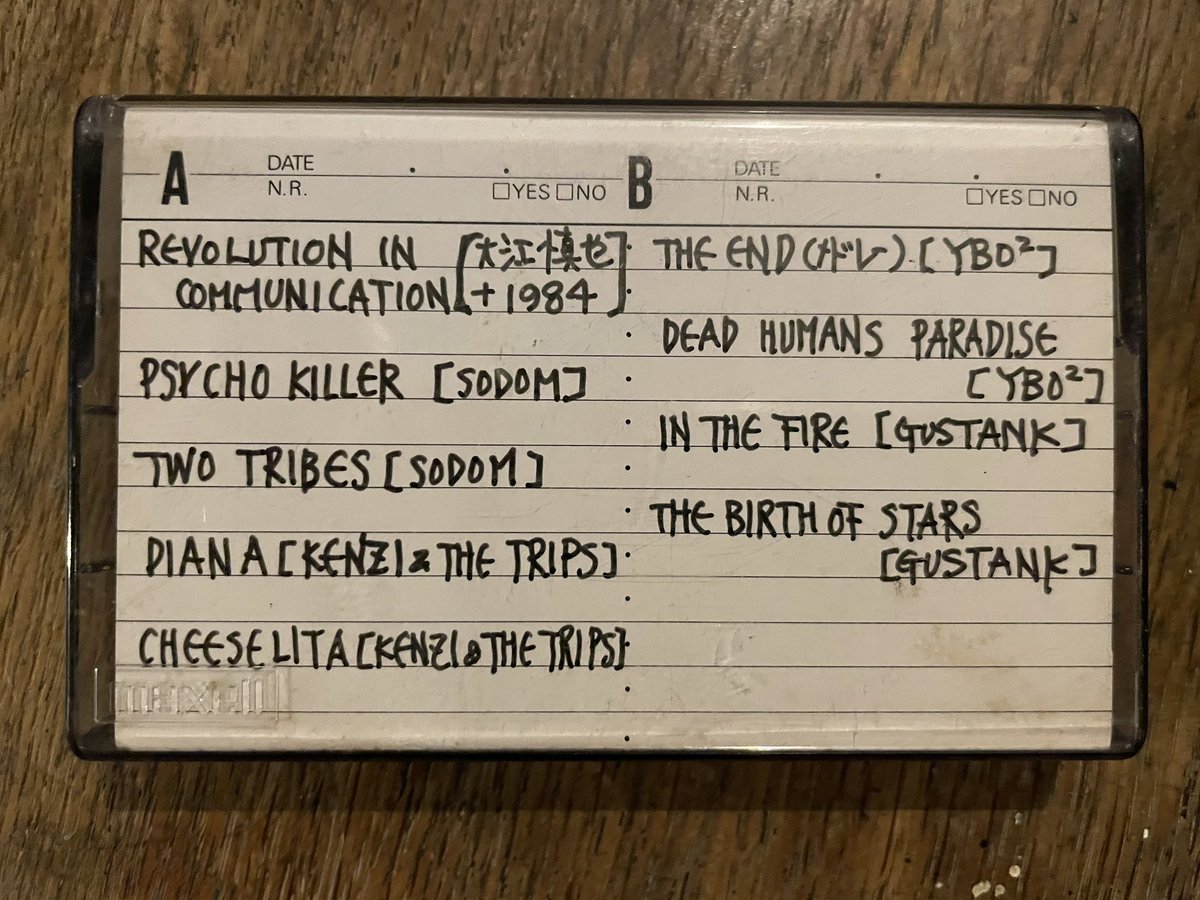 A
DATE
N.R. □YES □NO
REVOLUTION IN [大江慎也
COMMUNICATION +1984]
PSYCHO KILLER [SODOM]
TWO TRIBES [SODOM]
DIANA [KENZI & THE TRIPS]
CHEESE LITA [KENZI & THE TRIPS]
maxell
B
DATE
N.R. □YES □NO
THE END (ドレ) [YBO²]
DEAD HUMANS PARADISE
[YBO²]
IN THE FIRE [GUSTANK]
THE BIRTH OF STARS
[GUSTANK]